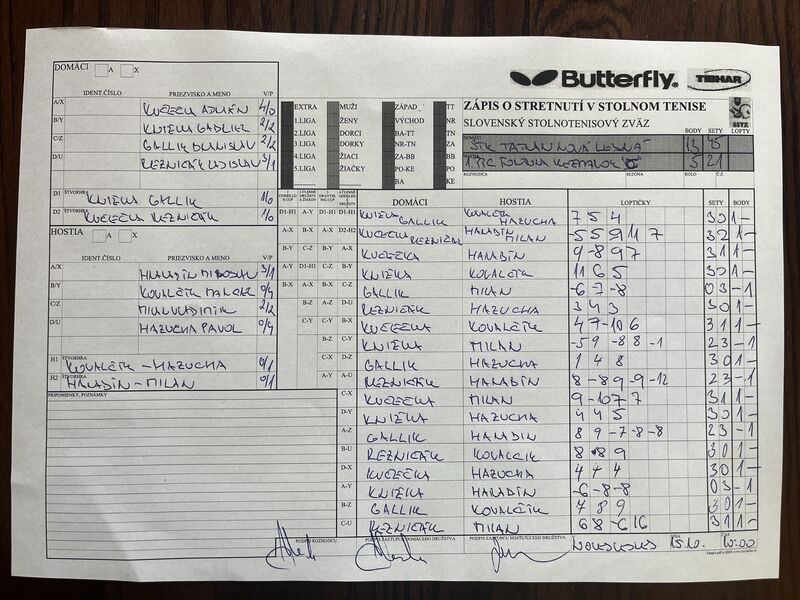 DOMÁCI A X
IDENT.ČÍSLO PRIEZVISKO A MENO V/P
A/X KUČEČKA ADRIÁN 4/0
B/Y KNIŽKA 2/2
C/Z GALLIK BRANISLAV 2/2
D/U REZNIČÁK LADISLAV 3/1
D1 ŠTVORHRA KNIŽKA GALLIK 1/0
D2 KUČEČKA REZNIČÁK 1/0
HOSTIA A X
IDENT.ČÍSLO PRIEZVISKO A MENO V/P
A/X HANADIN MIROSLAV 3/1
B/Y KOVALČÍK 0/4
C/Z MILAN VLADIMÍR 2/2
D/U HAZUCHA PAVOL 0/4
H1 ŠTVORHRA KOVALČIK - HAZUCHA 0/1
H2 ŠTVORHRA HANADÍN - MILAN 0/1
PRIPOMIENKY, POZNÁMKY
Butterfly TIBHAR
ZÁPIS O STRETNUTÍ V STOLNOM TENISE
SLOVENSKÝ STOLNOTENISOVÝ ZVÄZ SSTZ
EXTRA MUŽI ZÁPAD TT
1.LIGA ŽENY VÝCHOD NR
2.LIGA DORCI BA-TT TN
3.LIGA DORKY NR-TN ZA
4.LIGA ŽIACI ZA-BB BB
5.LIGA ŽIAČKY PO-KE PO
BA KE
DOMÁCI BODY SETY LOPTY
ŠTK TATRAN NOVÁ LESNÁ 13 45
HOSTIA
5 21
ROZHODCA SEZÓNA KOLO Č.Z.
DOMÁCI HOSTIA LOPTIČKY SETY BODY
D1-H1 A-Y D1-H1 D1-H1 KNIŽKA GALLIK KOVALČÍK HAZUCHA 7 5 4 3 0 1 -
A-X B-X A-X D2-H2 KUČEČKA REZNIČÁK HANADIN MILAN -5 5 9 11 7 3 2 1 -
B-Y C-Z B-Y A-X KUČEČKA HANADIN 9 -8 9 7 3 1 1 -
A-Y D1-H1 C-Z B-Y KNIŽKA KOVALČÍK 11 6 5 3 0 1 -
B-X A-X B-X C-Z GALLIK MILAN -6 -7 -8 0 3 - 1
B-Z A-Z D-U REZNIČÁK HAZUCHA 3 4 3 3 0 1 -
C-Y C-Y B-X KUČEČKA KOVALČÍK 4 7 -10 6 3 1 1 -
B-Z C-Y KNIŽKA MILAN -5 9 -8 8 -1 2 3 - 1
C-X D-Z GALLIK HAZUCHA 1 4 8 3 0 1 -
A-Y A-U REZNIČÁK HANADÍN 8 -8 9 -9 -12 2 3 - 1
C-X KUČEČKA MILAN 9 -10 7 7 3 1 1 -
D-Y KNIŽKA HAZUCHA 4 4 5 3 0 1 -
A-Z GALLIK HANADIN 8 9 -7 -8 -8 2 3 - 1
B-U REZNIČÁK KOVALČIK 8 8 9 3 0 1 -
D-X KUČEČKA HAZUCHA 4 4 4 3 0 1 -
A-Y KNIŽKA HANADÍN -6 -8 -8 0 3 - 1
B-Z GALLIK KOVALČÍK 7 8 9 3 0 1 -
C-U REZNIČÁK MILAN 6 8 -6 16 3 1 1 -
PODPIS ROZHODCU PODPIS ZÁSTUPCU DOMÁCEHO DRUŽSTVA PODPIS ZÁSTUPCU HOSŤUJÚCEHO DRUŽSTVA
15.10. 10:00